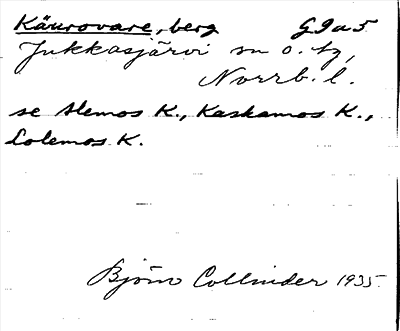 Käurovare, berg G9a5
Jukkasjärvi sn o. tg,
Norrb. l.
se Alemos K., Kaskamos K.,
Lolemos K.
Björn Collinder 1935.